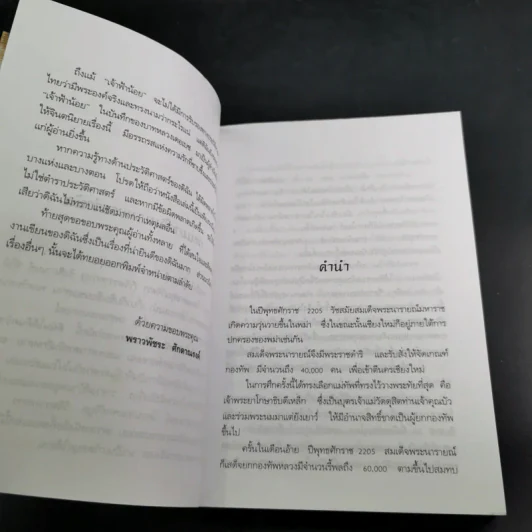 ถึงแม้ "เจ้าฟ้าน้อย" จะไม่ได้มีการ
ไทยว่ามีพระองค์จริงและทรงนามว่ากระไรแน่
"เจ้าฟ้าน้อย" ในบันทึกของบาทหลวงเดอะแบส
ให้จินตนิยายเรื่องนี้ มีอรรถรสแห่งความรัก
แก่ผู้อ่านยิ่งขึ้น
หากความรู้ทางด้านประวัติศาสตร์ของดิฉัน
บางแห่งและบางตอน โปรดให้ถือว่าหนังสือเล่มนี้เป็น
ไม่ใช่ตำราประวัติศาสตร์ และหากมีข้อผิดพลาดเกิดขึ้น
เสียว่าดิฉันไม่ทราบแน่ชัดมากกว่าเหตุผลอื่น
ท้ายสุดขอขอบพระคุณผู้อ่านทั้งหลาย ที่ได้
งานเขียนของดิฉันซึ่งเป็นเรื่องที่น่ายินดีของดิฉันมาก
เรื่องอื่นๆ นั้นจะได้ทยอยออกพิมพ์จำหน่ายตามลำดับ
ด้วยความขอบพระคุณ
พราวพัชระ
คำนำ
ในปีพุทธศักราช 2205 รัชสมัยสมเด็จพระนารายณ์มหาราช
เกิดความวุ่นวายขึ้นในพม่า ซึ่งในขณะนั้นเชียงใหม่ก็อยู่ภายใต้การ
ปกครองของพม่าเช่นกัน
สมเด็จพระนารายณ์จึงมีพระราชดำริ และรับสั่งให้จัดเกณฑ์
กองทัพ มีจำนวนถึง 40,000 คน เพื่อเข้าตีนครเชียงใหม่
ในการศึกครั้งนี้ได้ทรงเลือกแม่ทัพที่ทรงไว้วางพระทัยที่สุด คือ
เจ้าพระยาโกษาธิบดีเหล็ก ซึ่งเป็นบุตรเจ้าแม่วัดดุสิตท่านเจ้าคุณบัว
และร่วมพระนมมาแต่ยังเยาว์ ให้มีอำนาจสิทธิ์ขาดเป็นผู้ยกกองทัพ
ขึ้นไป
ครั้นในเดือนอ้าย ปีพุทธศักราช 2205 สมเด็จพระนารายณ์
ก็เสด็จยกกองทัพหลวงมีจำนวนรี้พลถึง 60,000 ตามขึ้นไปสมทบ